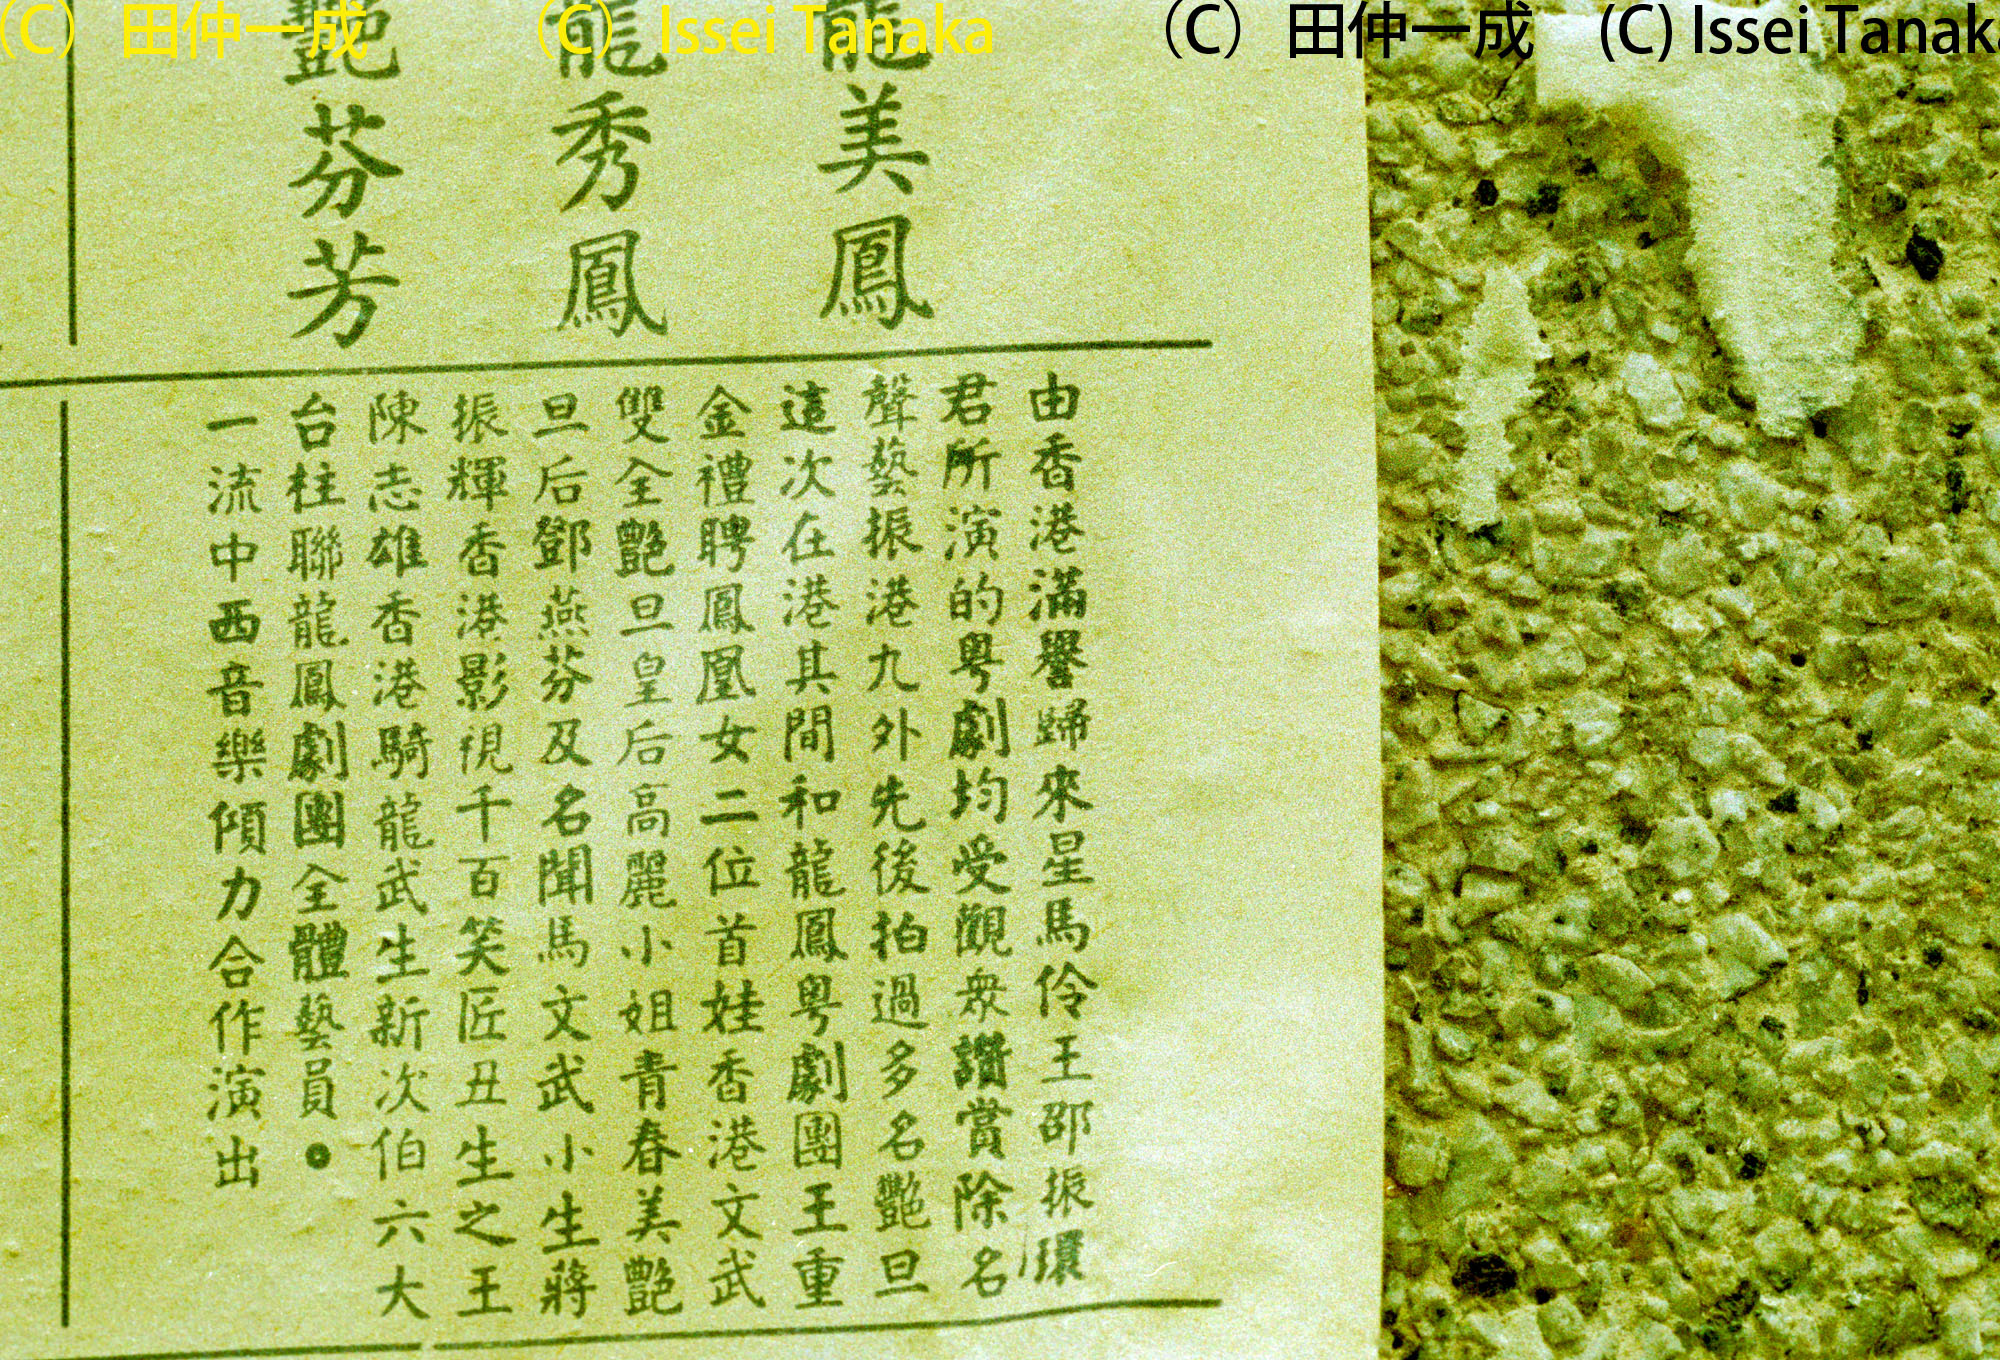 (C) 田仲一成 (C) Issei Tanaka (C) 田仲一成 (C) Issei Tanaka
龍美鳳
龍秀鳳
艷芬芳
由香港滿譽歸來星馬伶王邵振環
君所演的粤劇均受觀衆讚賞除名
聲藝振港九外先後拍過多名艷旦
這次在港其間和龍鳳粤劇團王重
金禮聘鳳凰女二位首娃香港文武
雙全艷旦皇后高麗小姐青春美艷
旦后鄧燕芬及名聞馬文武小生蔣
振輝香港影視千百笑匠丑生之王
陳志雄香港騎龍武生新次伯六大
台柱聯龍鳳劇團全體藝員。
一流中西音樂傾力合作演出